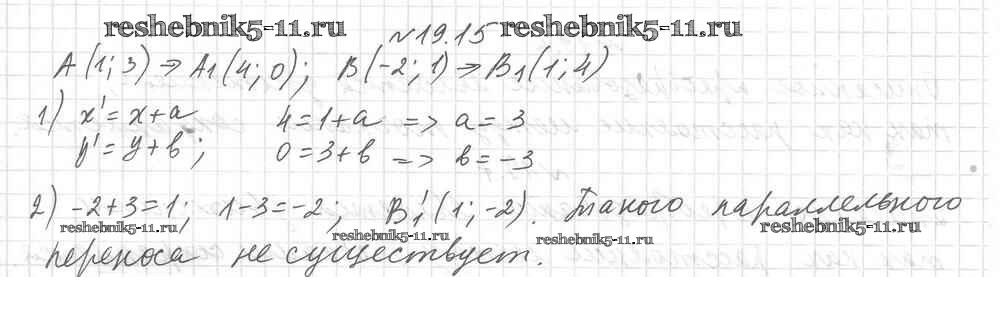 reshebnik5-11.ru №19.15 reshebnik5-11.ru
A(1; 3) ⇒ A1(4; 0); B(-2; 1) ⇒ B1(1; 4)
1) x' = x+a 4=1+a => a=3
y' = y+b; 0=3+b => b=-3
2) -2+3=1; 1-3=-2; B1'(1; -2). Такого параллельного
reshebnik5-11.ru reshebnik5-11.ru reshebnik5-11.ru reshebnik5-11.ru
переноса не существует.